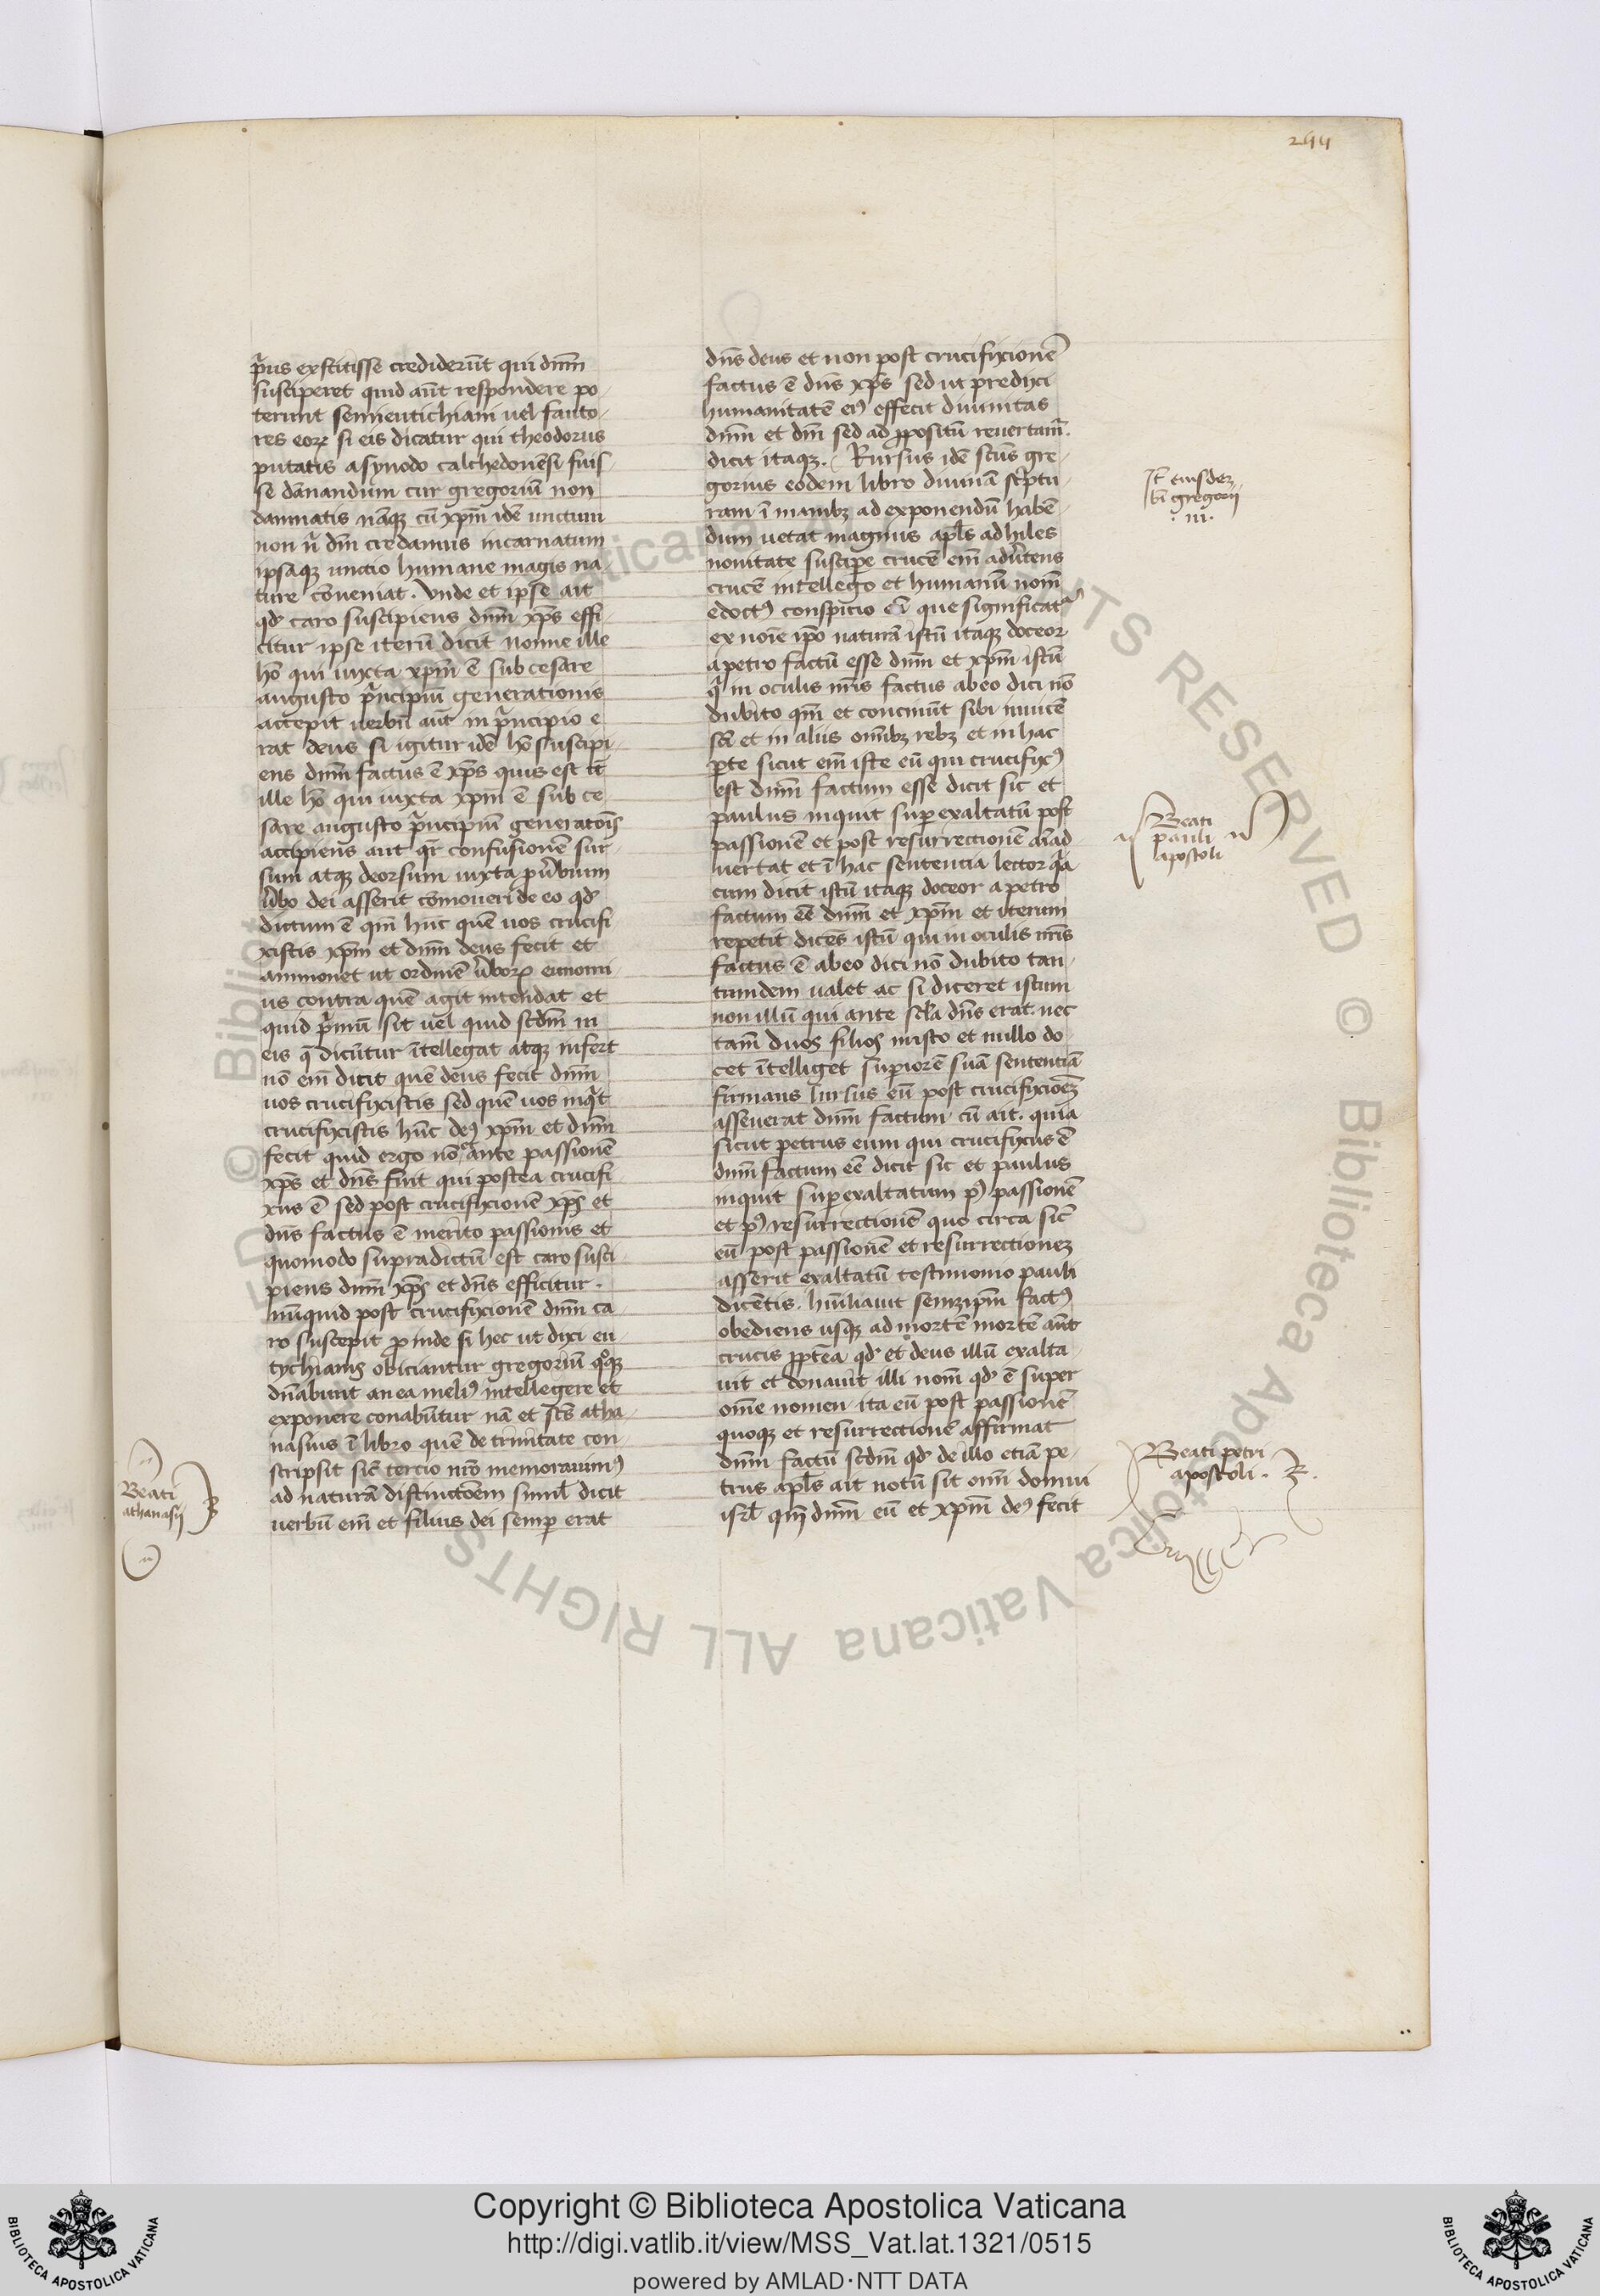 244
p̾us exstitisse crediderūt qui dnm̄
susciperet quid aūt respondere po-
terunt semieutichiani uel fauto-
res eoꝝ si eis dicatur qui theodorus
putatis a synodo calchedonēsi fuis-
se dānandum cur gregoriū non
damnatis nāqꝫ cū xpm̄ idē unctum
non ū dm̄ credamus incarnatum
ipsaqꝫ unctio humane magis na-
ture cōueniat. Vnde et ipse ait
qđ caro suscipiens dnm̄ xps̄ effi-
citur ipse iterū dicit nonne ille
hō qui iuxta xpm̄ ē sub cesare
augusto p̾ncipiū generationis
accepit uerbū aūt in p̾ncipio e
rat deus si igitur idē hō suscipi-
ens dnm̄ factus ē xps̄ quis est
ille hō qui iuxta xpm̄ ē sub ce
sare augusto p̾ncipiū generatoīs
accipiens aut qr̄ confusionē sur-
sum atqꝫ deorsum iuxta pū̾bium
ū̾bo dei asserit cōmoueri de eo qđ
dictum ē qm̄ hūc quē uos crucifi
xistis xpm̄ et dnm̄ deus fecit et
ammonet ut ordinē ū̾boꝝ eunomi
us contra quē agit intendat et
quid p̾mū sit uel quid scdm̄ in
eis q̄ dicūtur ītellegat atqꝫ infert
nō em̄ dicit quē deus fecit dnm̄
uos crucifyxistis sed quē uos inq̾t
crucifyxistis hūc deꝰ xpm̄ et dnm̄
fecit quid ergo nō ante passionē
xps̄ et dns̄ fuit qui postea crucifi
xus ē sed post crucifyxionē xps̄ et
dns̄ factus ē merito passionis et
quomodo supradictū est caro susci
piens dnm̄ xps̄ et dns̄ efficitur.
nūquid post crucifyxionē dnm̄ ca
ro suscepit ꝓinde si hec ut dixi eu-
tychianis obiciantur gregoriū qͦqꝫ
dnābunt an ea meliꝰ intellegere et
exponere conabūtur nā et scs̄ atha
nasius ī libro quē de trinitate con
scripsit sic̄ tercio nr̄o memorauimꝰ
ad naturā distinctōem simil̄ dicit
uerbū em̄ et filius dei semꝑ erat
Beati
athanasij
dns̄ deus et non post crucifyxionē
factus ē dns̄ xps̄ sed ut predixi
humanitatē eiꝰ effecit diuinitas
dnm̄ et dm̄ sed ad ꝓpositū reuertam̄.
dicit itaqꝫ. Rursus idē scūs gre-
gorius eodem libro diuinā sc̾ptu-
ram ī manibꝫ ad exponendū habē-
dum uetat magnus apl̄s ad hiles
nouitate suscipe crucē em̄ adū̾tens
crucē intellego et humanū nom̄
edoctꝰ conspicio que significatᷣ
ex noīe ip̄o naturā istū itaqꝫ doceor
a petro factū esse dnm̄ et xpm̄ istū
q̾ in oculis nr̄is factus ab eo dici nō
dubito qm̄ et concinūt sibi inuicē
sc̄i et in aliis om̄ibꝫ rebꝫ et in hac
ꝑte sicut em̄ iste eū qui crucifyxꝰ
est dnm̄ factum esse dicit sic et
paulus inquit suꝑexaltatū post
passionē et post resurrectionē aīad-
uertat et ī hac sententia lector q̾a
cum dicit istū itaqꝫ doceor a petro
factum eē dnm̄ et xpm̄ et iterum
repetit dicēs istū qui in oculis nr̄is
factus ē ab eo dici nō dubito tan-
tumdem ualet ac si diceret istum
non illū qui ante scl̄a dns̄ erat nec
tam̄ duos filios iuxto et nullo do
cet ītelliget suꝑiorē suā sententiā
firmans eū post crucifyxioēꝫ
asseuerat dnm̄ factum cū ait. quia
sicut petrus eum qui crucifyxus ē
dnm̄ factum eē dicit sic et paulus
inquit suꝑexaltatum pꝰ passionē
et pꝰ resurrectionē quo circa sic̄
eū post passionē et resurrectioneꝫ
asserit exaltatū testimonio pauli
dicētis. hūiliauit semꝫip̄m factꝰ
obediens usqꝫ ad mortē mortē aūt
crucis ꝓpt̄ea qđ et deus illū exalta-
uit et donauit illi nom̄ qđ ē super
om̄e nomen ita eū post passionē
quoqꝫ et resurrectionē affirmat
dnm̄ factū scdm̄ qđ de illo etiā pe-
trus apl̄s ait notū sit om̄i domui
isrl̄ qm̄ dnm̄ eū et xpm̄ deꝰ fecit
It̄ eiusdeꝫ
bī gregorij
.iii.
Beati
pauli
apostoli
Beati petri
apostoli.
© Biblioteca Apostolica Vaticana ALL RIGHTS RESERVED
Copyright © Biblioteca Apostolica Vaticana
http://digi.vatlib.it/view/MSS_Vat.lat.1321/0515
powered by AMLAD·NTT DATA
BIBLIOTECA APOSTOLICA VATICANA
BIBLIOTECA APOSTOLICA VATICANA